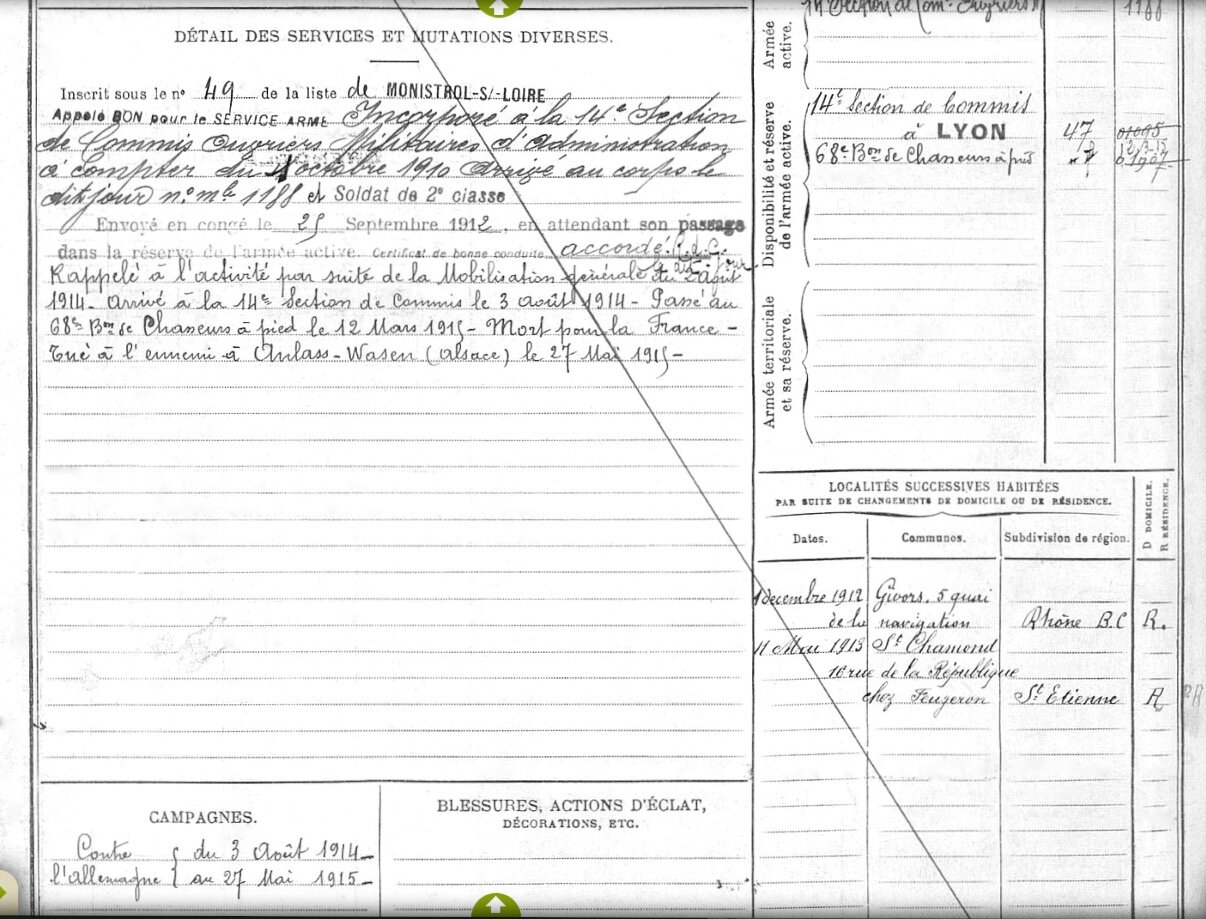 DÉTAIL DES SERVICES ET MUTATIONS DIVERSES.
Inscrit sous le nº 49 de la liste de MONISTROL-S/-LOIRE
Appelé BON pour le SERVICE ARMÉ Incorporé à la 14e Section
de Commis Ouvriers Militaires d'Administration
à compter du octobre 1910 Arrivé au corps le
dit jour nº mle 1188 et Soldat de 2e classe
Envoyé en congé le 25 Septembre 1912, en attendant son passage
dans la réserve de l'armée active. Certificat de bonne conduite accordé.
dit jour
Rappelé à l'activité par suite de la Mobilisation générale du 2 août
1914. arrivé à la 14e Section de Commis le 3 août 1914 - Passé au
68e Bon de Chasseurs à pied le 12 Mars 1915 - Mort pour la France -
Tué à l'ennemi à Anlass-Wasen (Alsace) le 27 Mai 1915 -
CAMPAGNES.
Contre { du 3 Août 1914 -
l'allemagne { au 27 Mai 1915 -
BLESSURES, ACTIONS D'ÉCLAT,
DÉCORATIONS, ETC.
Armée
active.
14 Section de Com. Ouvriers M 1188
Disponibilité et réserve
de l'armée active.
14e Section de Commis
à LYON 47 01005
12.3.15
68e Bon de Chasseurs à pied 01907
Armée territoriale
et sa réserve.
LOCALITÉS SUCCESSIVES HABITÉES
PAR SUITE DE CHANGEMENTS DE DOMICILE OU DE RÉSIDENCE.
Dates. Communes. Subdivision de région. D DOMICILE. R RÉSIDENCE.
1 décembre 1912 Givors. 5 quai
de la navigation Rhône B.C R.
11 Mai 1913 St Chamond
16 rue de la République
chez Feugeron St Etienne R